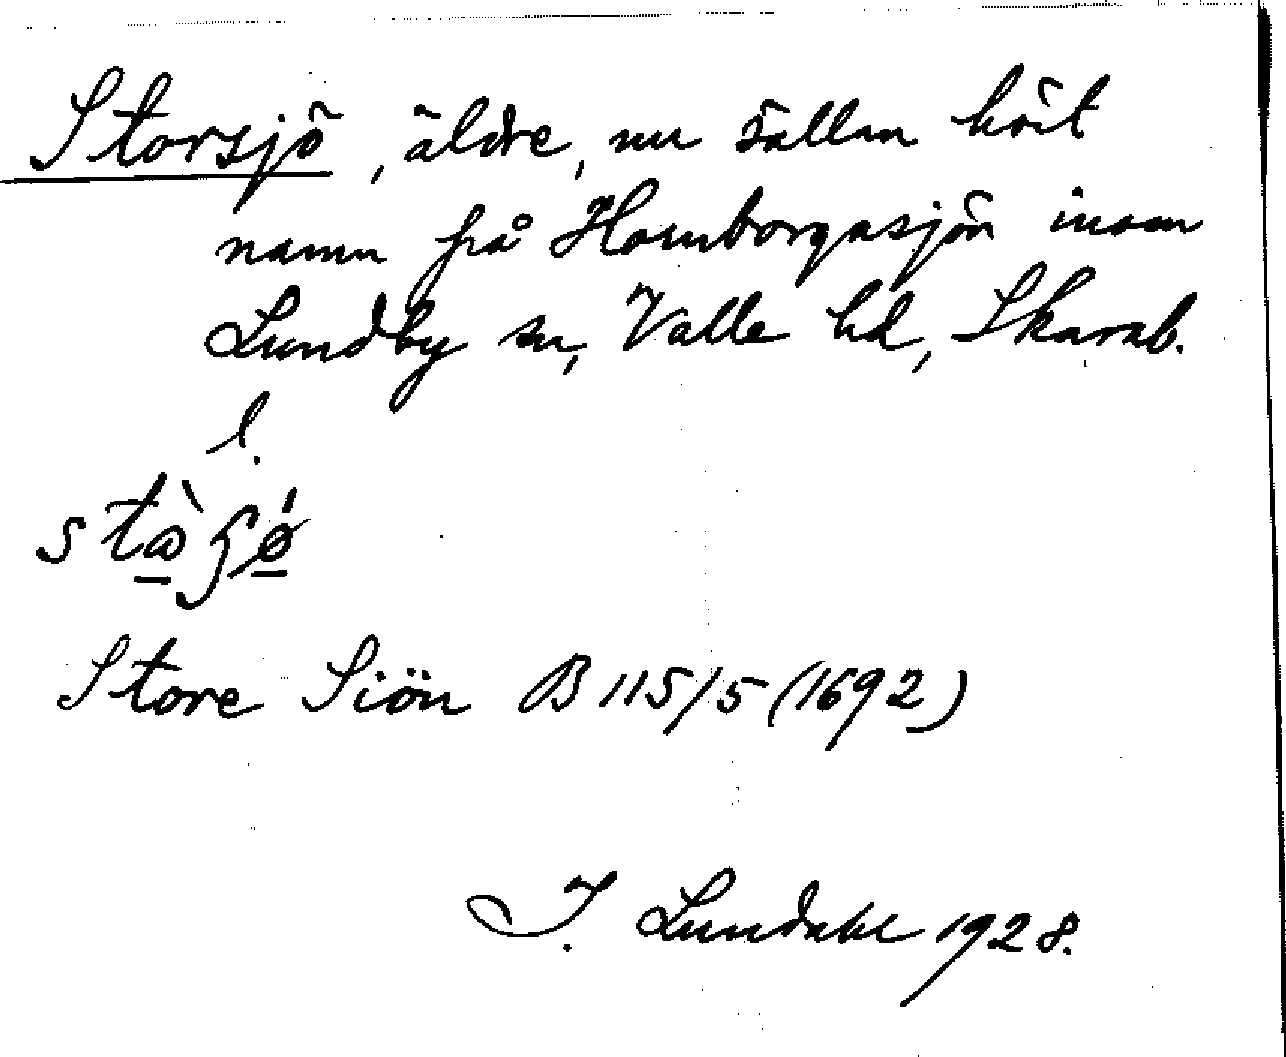 Storsjö, äldre, nu sällan hört
namn på Hornborgasjön inom
Lundby sn, Valle hd, Skarab.
l.
Store Siön B 115/5 (1692)
I. Lundahl 1928.